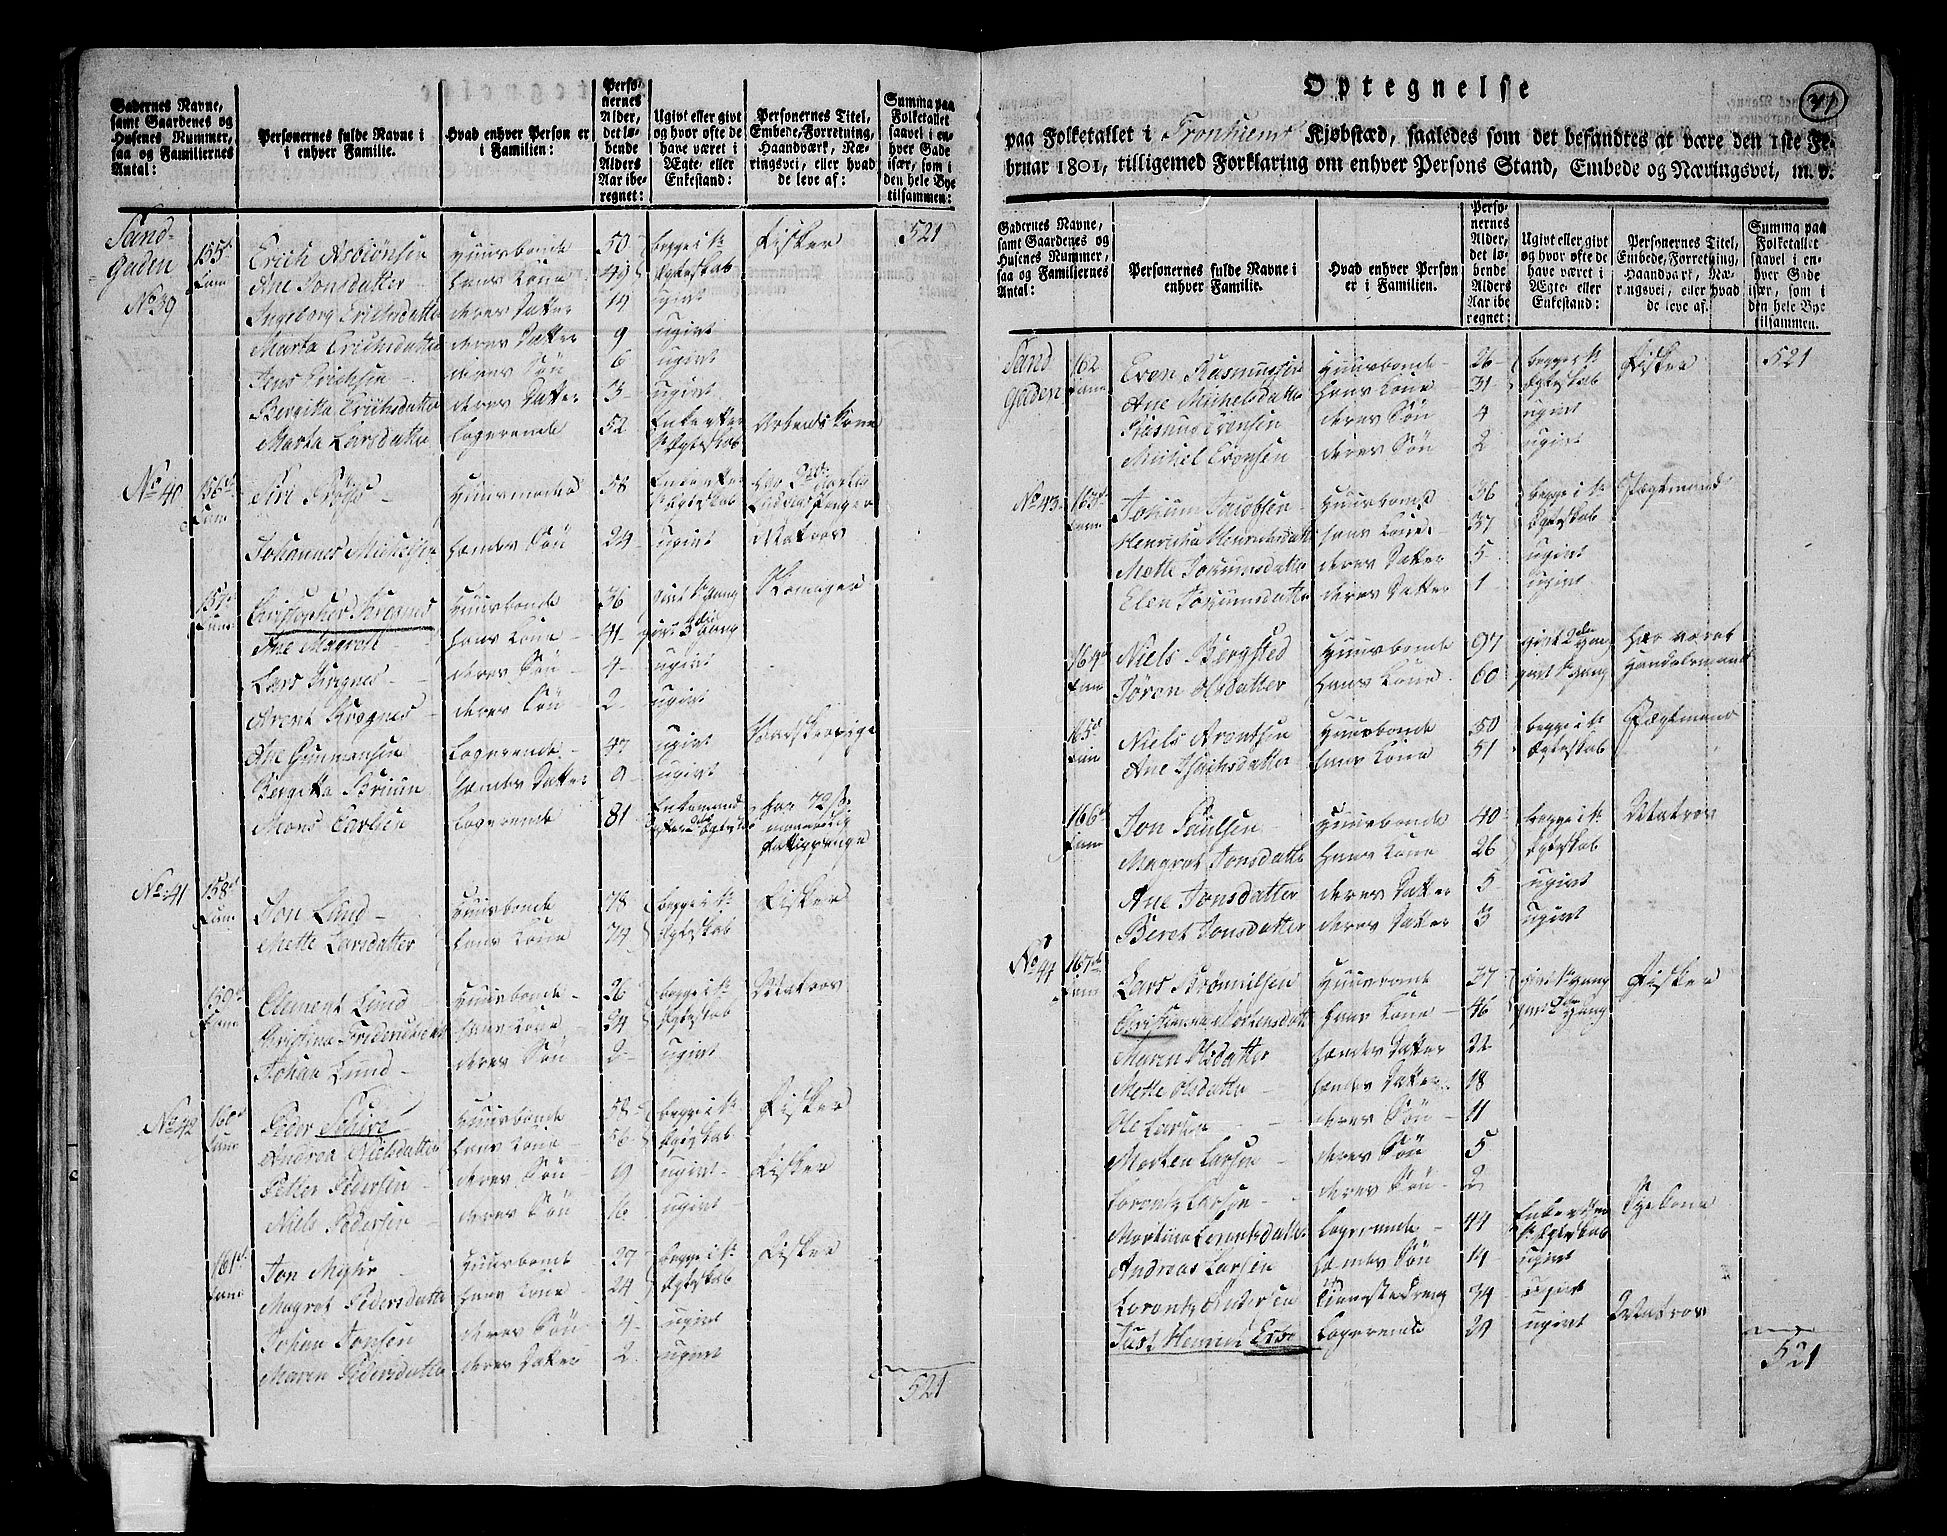 Gadernes Navne, samt Gaardenes og Husenes Nummer, saa og Familiernes Antal:
Personernes fulde Navne i i enhver Familie.
Hvad enhver Person er i Familien:
Personernes Alder, det løbende Alders Aar iberegnet:
Ugivt eller givt og hvor ofte de have været i Ægte- eller Enkestand:
Personernes Titel, Embede, Forretning, Haandværk, Næringsvei, eller hvad de leve af:
Summa paa Folketallet saavel i enhver Gade især, som i den hele Bye tilsammen:
Sand-
Gaden
No 39
155de Fam
Erich Asbiønsen Huusbonde 50 begge i 1ste Fisker 521
Ane Jonsdatter hans Kone 49 Egteskab
Ingeborg Erichsdatter deres Datter 14 ugivt
Marta Erichsdatter deres Datter 9 ugivt
Jens Erichsen deres Søn 6 ugivt
Bergitta Erichsdatter deres Datter 3 ugivt
Marta Larsdatter logerende 52 Enke efter 1ste Egteskab Arbeids Kone
No 40 156de Fam
Siri Huusmoder 58 Enke efter 1ste Egteskab
Johannes Michelsen hendes Søn 24 ugivt Matros
157de Fam
Christopher Krognes Huusbonde 36 givt 1ste Gang
Ane Magrott hans Kone 41 givt 3die Gang
Lars Krognes deres Søn 4 ugivt
Arent Krognes deres Søn 2 ugivt
Ane Gunnersen logerende 47 ugivt
Bergitta Bruun hendes Datter 9 ugivt
Mons Carlsen logerende 81 Enkemand
No 41 158de Fam
Jon Lund Huusbonde 78 begge i 1ste Fisker
Mette Larsdatter hans Kone 74 Egteskab
159de Fam
Clement Lund Huusbonde 26 begge i 1ste Matros
Christina Friderichsdatter hans Kone 34 Egteskab
Johan Lund deres Søn 2 ugivt
No 42 160de Fam
Peder Schive Huusbonde 58 begge i 1ste Fisker
Andrea Nielsdatter hans Kone 56 Egteskab
Petter Pedersen deres Søn 9 ugivt Fisker
Niels Pedersen deres Søn 16 ugivt
161de Fam
Jon Myhr Huusbonde 27 begge i 1ste Fisker
Magrot Pedersdatter hans Kone 24 Egteskab
Johan Jonsen deres Søn 4 ugivt
Maren Pedersdatter deres Datter 2 ugivt
521
Optegnelse
41
paa Folketallet i Tronhiems Kiøbstæd, saaledes som det befandtes at være den 1ste Februar 1801, tilligemed Forklaring om enhver Persons Stand, Embede og Næringsvei, m. v.
Gadernes Navne, samt Gaardenes og Husenes Nummer, saa og Familiernes Antal:
Personernes fulde Navne i enhver Familie.
Hvad enhver Person er i Familien.
Personernes Alder, det løbende Alders Aar iberegnet:
Ugivt eller givt og hvor ofte de have været i Ægte- eller Enkestand:
Personernes Titel, Embede, Forretning, Haandværk, Næringsvei, eller hvad de leve af.
Summa paa Folketallet saavel i enhver Gade især, som i den hele Bye tilsammen.
Sand
Gaden
162 Fam
Even Rasmussen Huusbonde 26 begge i 1ste Fisker 521
Ane Michelsdatter hans Kone 31 Egteskab
Rasmus Evensen deres Søn 4 ugivt
Michel Evensen deres Søn 2 ugivt
No 43 163de Fam
Jochum Jacobsen Huusbond 36 begge i 1ste Jægtmand
Henricha Henrichsdatter hans Kone 37 Egteskab
Mette Jochumsdatter deres Datter 5 ugivt
Elen Jochumsdatter deres Datter 1 ugivt
164de Fam
Niels Bergsted Huusbonde 97 givt 2den Gang Har været
Jøron Olsdatter hans Kone 60 givt 1ste Gang Handelsmand
165de Fam
Niels Arentsen Huusbonde 50 begge i 1ste Jægtmand
Ane Isachsdatter hans Kone 51 Egteskab
166de Fam
Jon Paulsen Huusbonde 40 begge i 1ste Matros
Magrot Jonsdatter hans Kone 26 Egteskab
Ane Jonsdatter deres Datter 5 ugivt
Beret Jonsdatter deres Datter 3 ugivt
No 44 167de Fam
Lars Huusbonde 37 givt 1ste Gang Fisker
Christianna Mortensdatter hans Kone 46 givt 2den Gang
Maren Olsdatter hendes Datter 22
Mette Olsdatter hendes Datter 18
Ole Larsen deres Søn 11
Morten Larsen deres Søn 5
Lorentz Larsen deres Søn 2
Martina Lorentsdatter logerende 44 Enke efter 1ste Egteskab Syekone
Andreas Larsen hendes Søn 14 ugivt
Lorentz Andersen Tienestedreng 34 ugivt
Just Henrich logerende 29 ugivt Matros
521